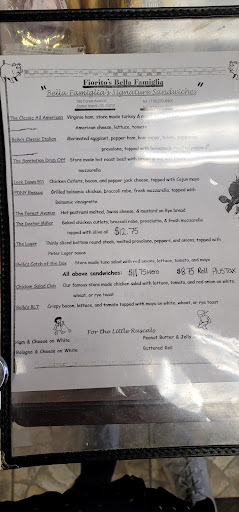 Fiorito's Bella Famiglia
"Bella Famiglia's Signature Sandwiches"
The Classic All American Virginia ham, store made turkey &
American cheese, lettuce, tomato
Italian
provolone, topped with
The Sanitation Drop Off Store made hot roast beef with
mozzarella
Chicken Cutlets, bacon, and pepper jack cheese, topped with Cajun mayo
Grilled balsamic chicken, broccoli rabe, fresh mozzarella, topped with
balsamic vinaigrette
The Forest Avenue Hot pastrami melted, Swiss cheese, & mustard on Rye bread
The Doctor Miller Baked chicken cutlets, broccoli rabe, prosciutto, & fresh mozzarella
topped with olive oil $12.75
Thinly sliced bottom round steak, melted provolone, peppers, and onions, topped with
Peter Luger sauce
Catch of the Day Store made tuna salad with red onions, lettuce, tomato, and mayo
All above sandwiches: $11.75 Hero $8.75 Roll PLUS TAX
Chicken Salad Club Our famous store made chicken salad with lettuce, tomato, and red onion on white,
wheat, or rye toast
BLT Crispy bacon, lettuce, and tomato topped with mayo on white, wheat, or rye toast
For the Little Rascals
Ham & Cheese on White Peanut Butter & Jelly
Bologna & Cheese on White Buttered Roll